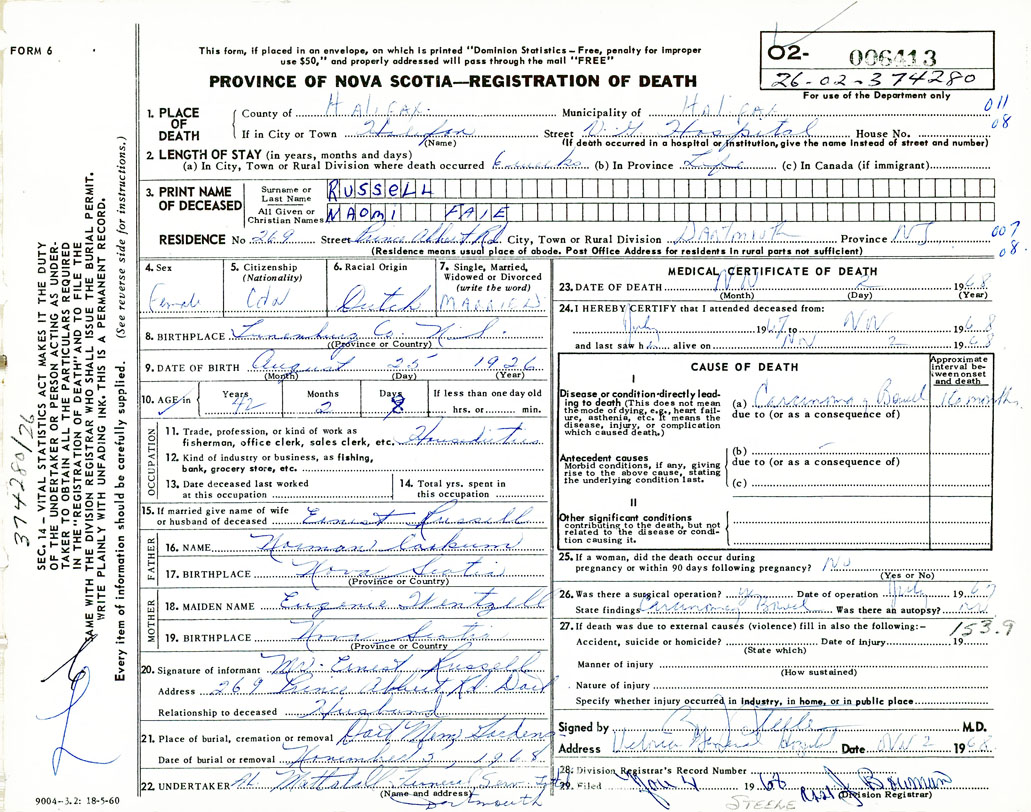 FORM 6
This form, if placed in an envelope, on which is printed "Dominion Statistics – Free, penalty for improper
use $50," and properly addressed will pass through the mail "FREE"
PROVINCE OF NOVA SCOTIA—REGISTRATION OF DEATH
02- 006413
26-02-374280
For use of the Department only
011
08
1. PLACE OF DEATH
County of Halifax Municipality of Halifax
If in City or Town Halifax Street V.G. Hospital House No.
(Name) (If death occurred in a hospital or institution, give the name instead of street and number)
2. LENGTH OF STAY (in years, months and days)
(a) In City, Town or Rural Division where death occurred 6 weeks (b) In Province Life (c) In Canada (if immigrant)
3. PRINT NAME OF DECEASED
Surname or Last Name RUSSELL
All Given or Christian Names NAOMI FAIE
RESIDENCE No 269 Street Prince Albert Rd City, Town or Rural Division Dartmouth Province NS
007
08
(Residence means usual place of abode. Post Office Address for residents in rural parts not sufficient)
4. Sex
Female
5. Citizenship (Nationality)
Cdn
6. Racial Origin
Dutch
7. Single, Married, Widowed or Divorced (write the word)
MARRIED
8. BIRTHPLACE Lunenburg Co. N.S.
(Province or Country)
9. DATE OF BIRTH August 25 1926
(Month) (Day) (Year)
10. AGE in
Years 42
Months 2
Days 8
If less than one day old
hrs. or min.
OCCUPATION
11. Trade, profession, or kind of work as
fisherman, office clerk, sales clerk, etc.
12. Kind of industry or business, as fishing,
bank, grocery store, etc
13. Date deceased last worked
at this occupation
14. Total yrs. spent in
this occupation
15. If married give name of wife
or husband of deceased Ernest Russell
FATHER
16. NAME Norman
17. BIRTHPLACE Nova Scotia
(Province or Country)
MOTHER
18. MAIDEN NAME Eugenie Wentzell
19. BIRTHPLACE Nova Scotia
(Province or Country
20. Signature of informant Mr. Ernest Russell
Address 269 Prince Albert Rd. Dart
Relationship to deceased Husband
21. Place of burial, cremation or removal Dart Mem Gardens
Date of burial or removal November 5, 1968
22. UNDERTAKER Mattatall Funeral Serv Ltd
(Name and address) Dartmouth
9004-3.2: 18-5-60
MEDICAL CERTIFICATE OF DEATH
23. DATE OF DEATH Nov 2 1968
(Month) (Day) (Year)
24. I HEREBY CERTIFY that I attended deceased from:
July 1967 to Nov 1968
and last saw h alive on Nov 2 1968
CAUSE OF DEATH
Approximate interval between onset and death
I
Disease or condition directly leading to death (This does not mean the mode of dying, e.g., heart failure, asthenia, etc. It means the disease, injury, or complication which caused death.)
(a) Carcinoma of Bowel 16 months
due to (or as a consequence of)
Antecedent causes
Morbid conditions, if any, giving rise to the above cause, stating the underlying condition last.
(b)
due to (or as a consequence of)
(c)
II
Other significant conditions
contributing to the death, but not related to the disease or condition causing it.
25. If a woman, did the death occur during
pregnancy or within 90 days following pregnancy? No
(Yes or No)
26. Was there a surgical operation? yes Date of operation July 1967
State finding Carcinoma Bowel Was there an autopsy? no
27. If death was due to external causes (violence) fill in also the following:–
153.9
Accident, suicide or homicide? Date of injury 19
(State which)
Manner of injury
(How sustained)
Nature of injury
Specify whether injury occurred in industry, in home, or in public place
Signed by Steele M.D.
Address Victoria General Hospital Date Nov 2 1968
28. Division Registrar's Record Number
29. Filed Nov 4 1968 Bowman
(Division Registrar)
STEELE
SEC. 14 – VITAL STATISTICS ACT MAKES IT THE DUTY
OF THE UNDERTAKER OR PERSON ACTING AS UNDER-
TAKER TO OBTAIN ALL THE PARTICULARS REQUIRED
IN THE "REGISTRATION OF DEATH" AND TO FILE THE
SAME WITH THE DIVISION REGISTRAR WHO SHALL ISSUE THE BURIAL PERMIT.
WRITE PLAINLY WITH UNFADING INK. THIS IS A PERMANENT RECORD.
Every item of information should be carefully supplied. (See reverse side for instructions.)
374280/26